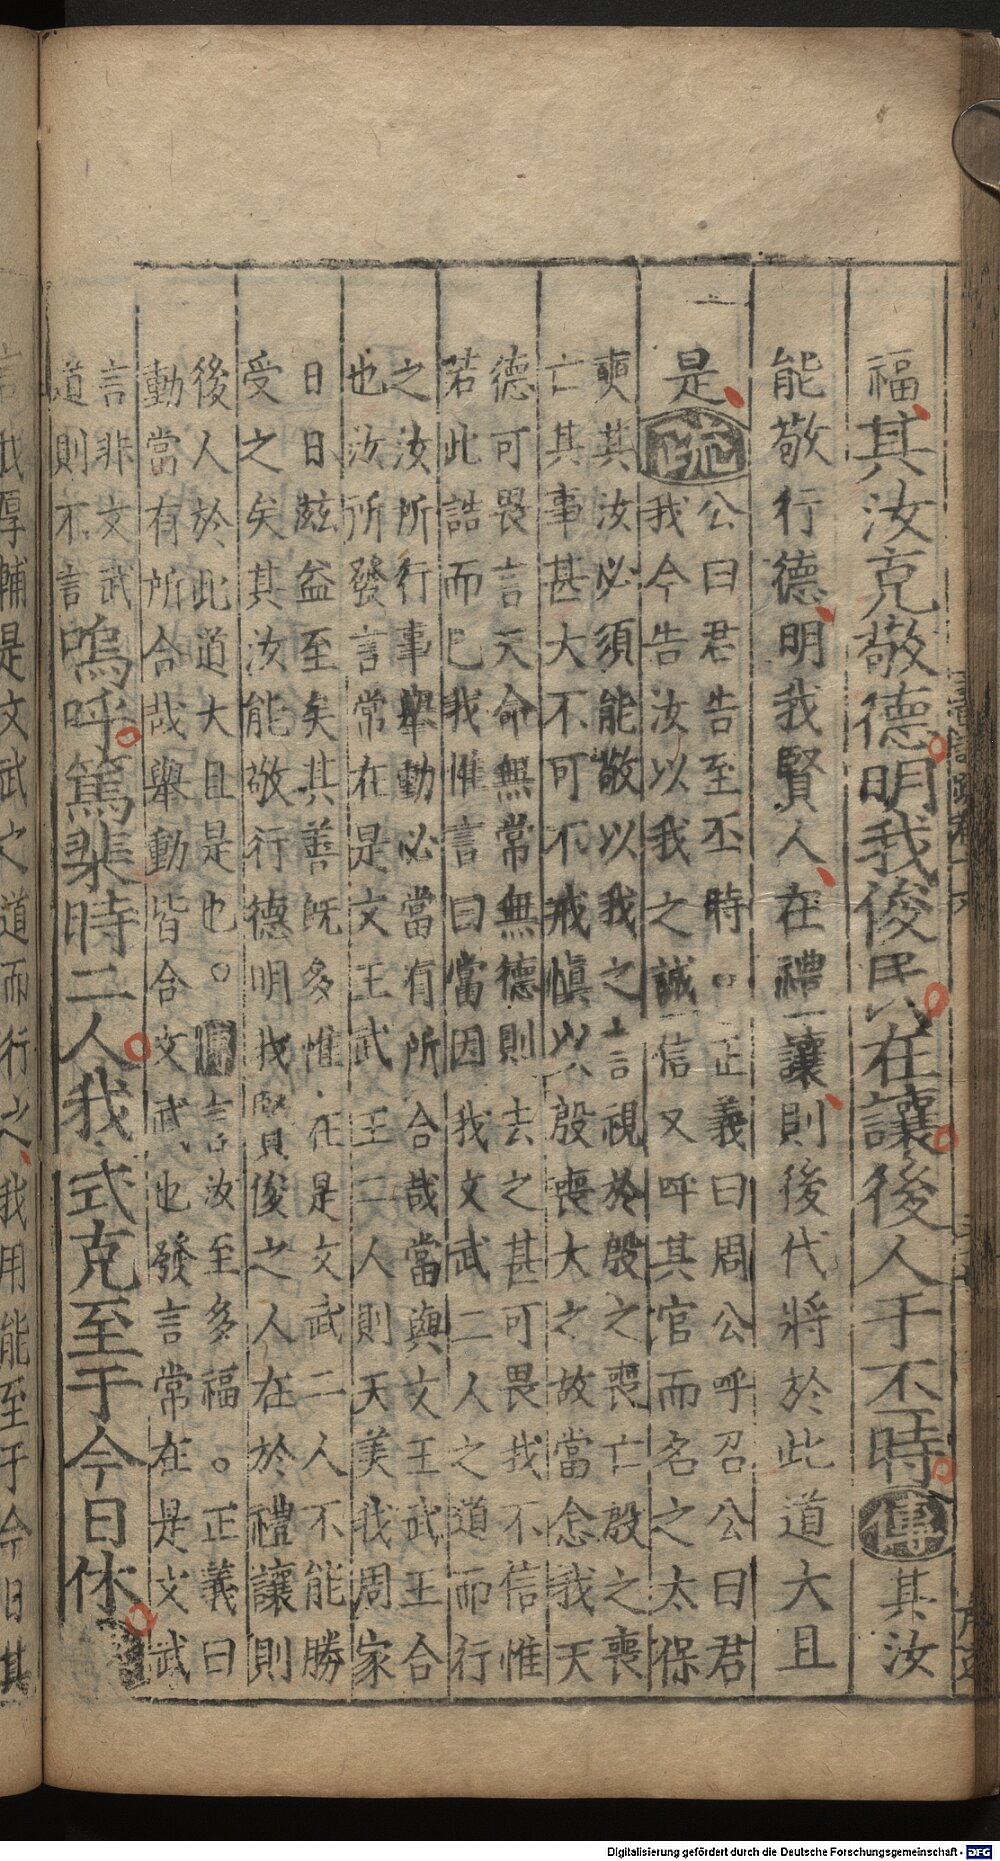 福其汝克敬德明我俊民在讓後人于丕時傳其汝
能敬行德明我賢人在禮讓則後代將於此道大且
是疏
公曰君告至丕時。正義曰周公呼召公曰君
我今告汝以我之誠信又呼其官而名之太保
奭其汝必須能敬以我之言視於殷之喪亡殷之喪
亡其事甚大不可不戒慎以殷喪大之故當念我天
德可畏言天命無常無德則去之甚可畏我不信惟
若此誥而已我惟言曰當因我文武二人之道而行
之汝所行事舉動必當有所合哉當與文王武王合
也汝所發言常在是文王武王二人則天美我周家
日日茲益至矣其善既多惟在是文武二人不能勝
受之矣其汝能敬行德明我賢俊之人在於禮讓則
後人於此道大且是也。傳言汝至多福。正義曰
動當有所合哉舉動皆合文武也發言常在是文武
言非文武
道則不言
嗚呼篤棐時二人我式克至于今日休
言我厚輔是文武之道而行之我用能至于今日其
Digitalisierung gefördert durch die Deutsche Forschungsgemeinschaft - DFG